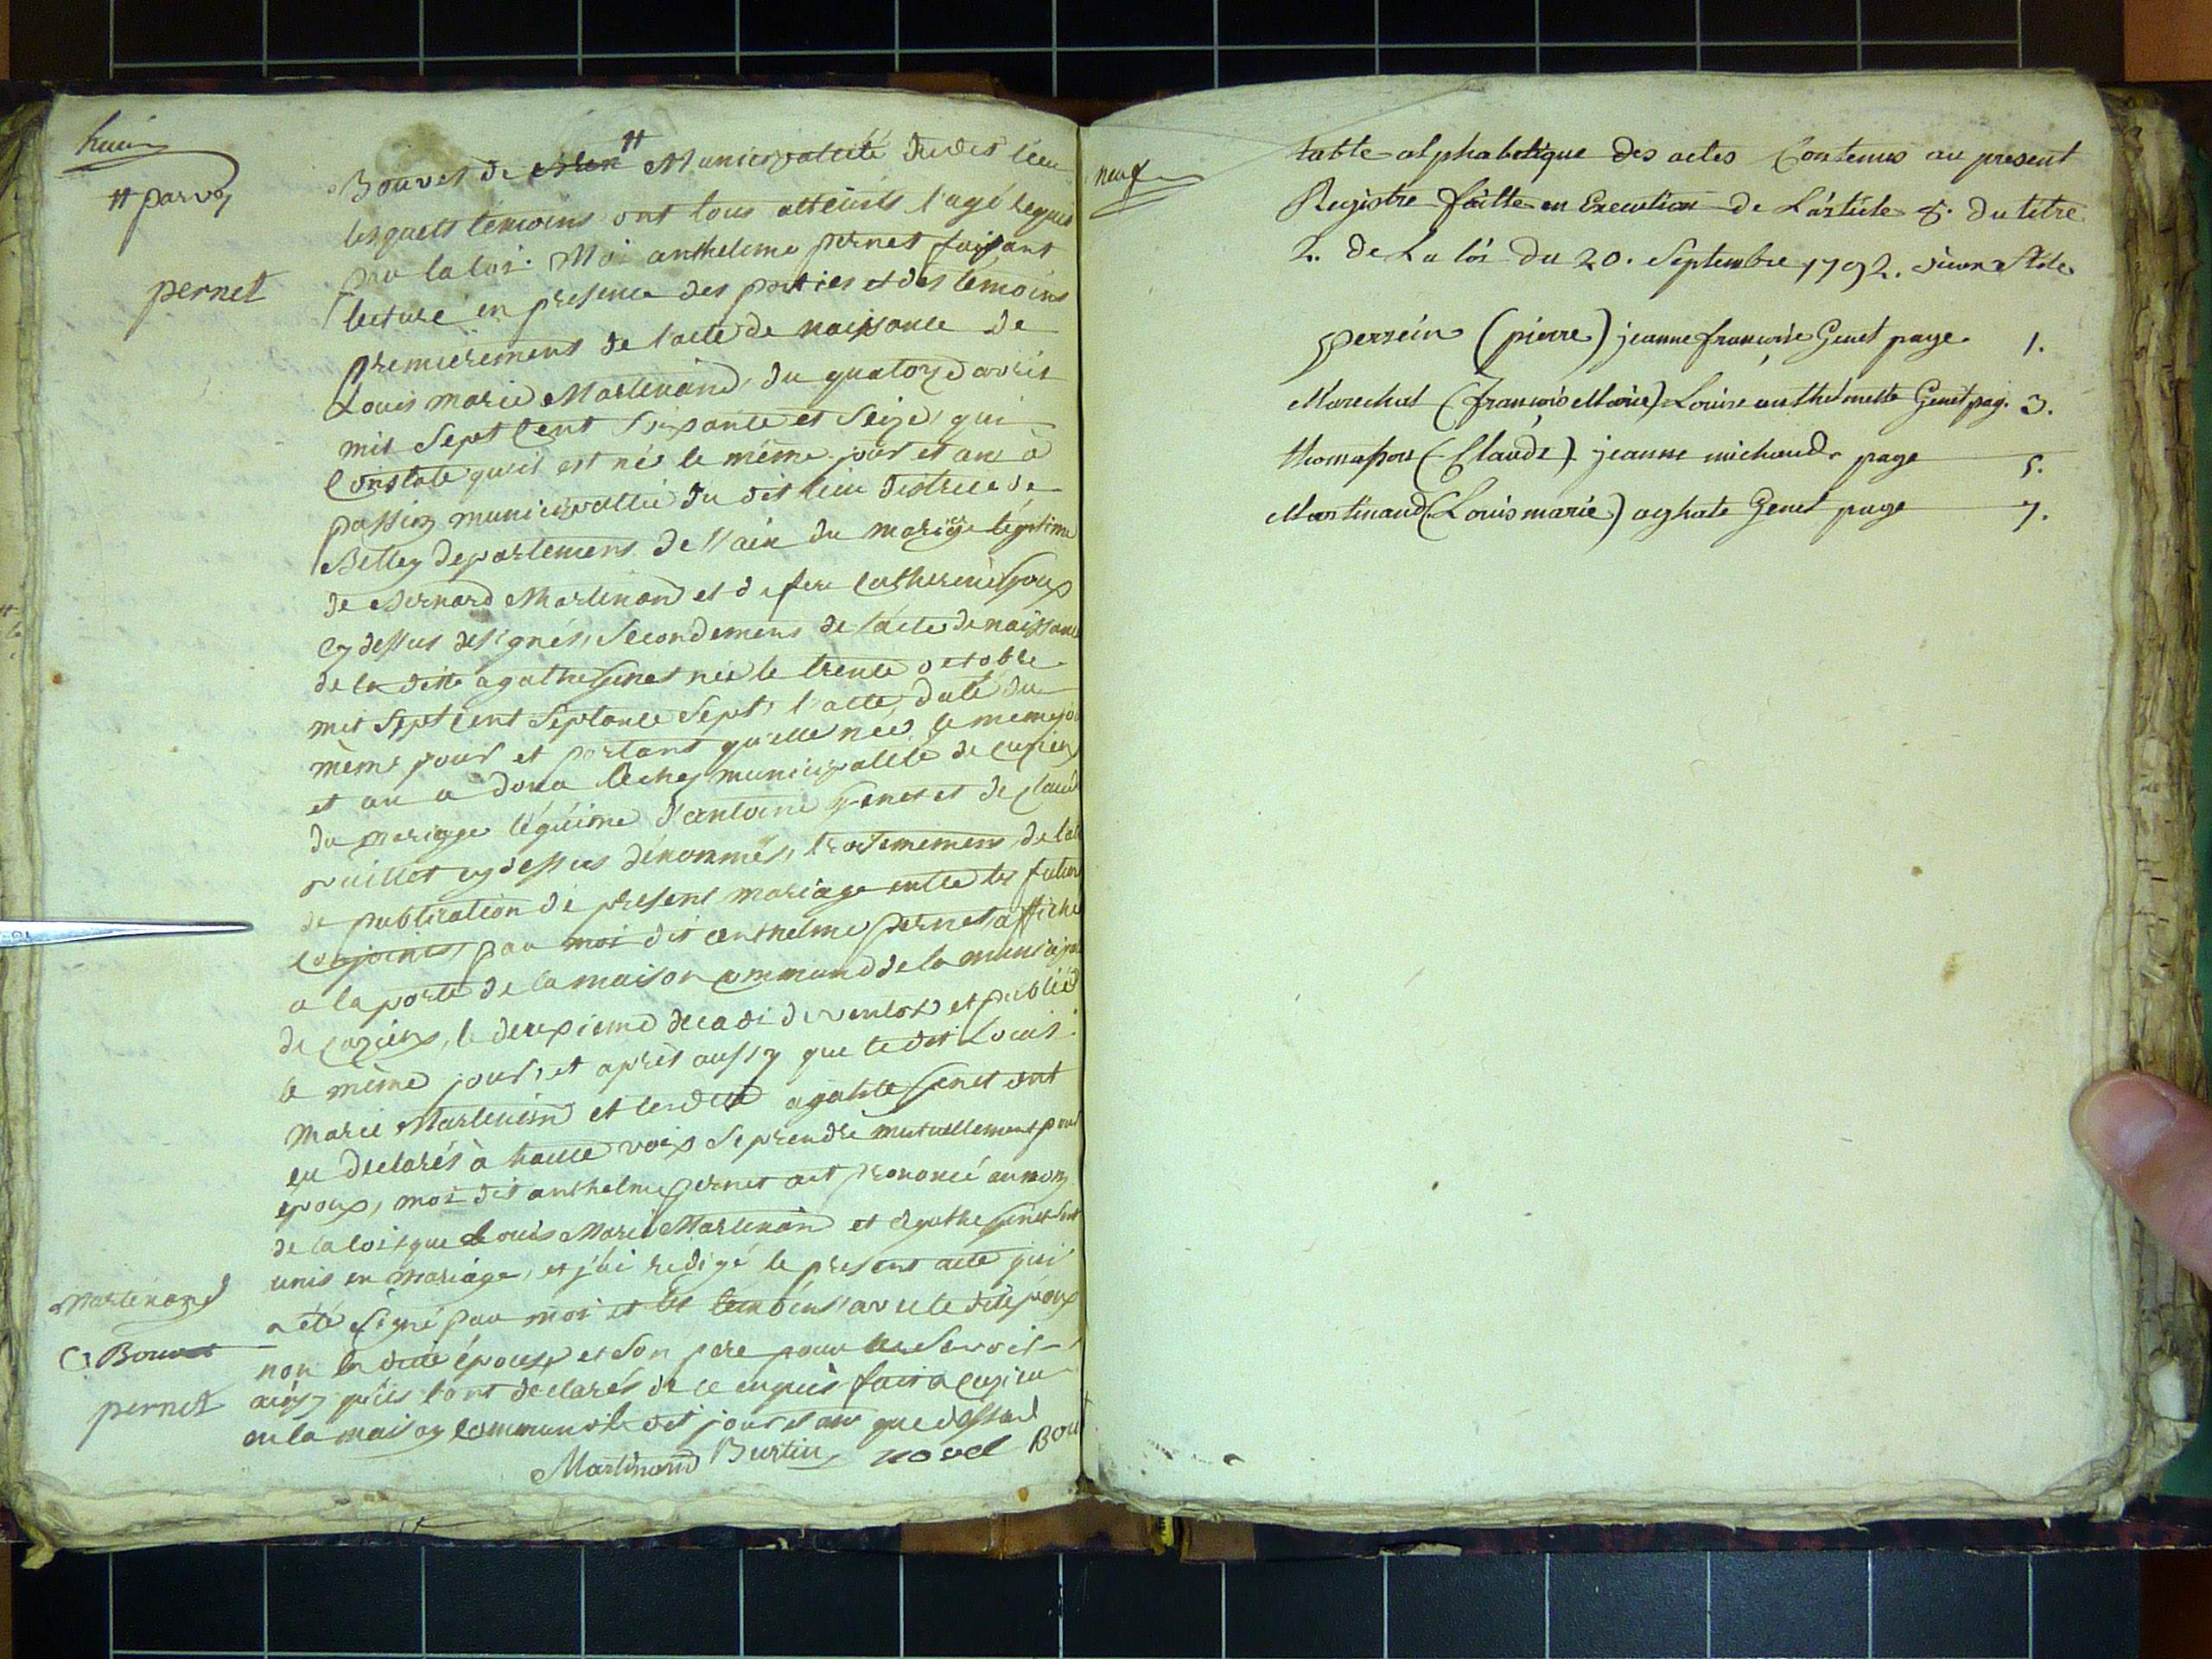 huit
# parvès
pernet
Bouvet de # Municipalité dudit lieu
lesquels témoins ont tous atteints l'age requis
par la loi. Moi anthelme pernet faisant
lecture en presence des parties et des témoins
premierement de l'acte de naissance de
Louis marie Martinand, du quatorze avril
mil sept Cent soixante et seize, qui
Constate qu'il est né le même jour et an à
passin municipalité du dit lieu district de
Belley departement de l'ain du mariage légitime
de Bernard Martinand et de feue Catherine
cy dessus designés, secondement de l'acte de naissance
de la ditte agathe Genet née le trente octobre
mil sept Cent septante sept, l'acte daté du
même jour et portant qu'elle née le meme jo
et an à municipalité de Cuzieu
du mariage légitime d'antoine Genet et de Claud
vuillet cy dessus dénommés, troisiemement de l'acte
de publication de present mariage entre les futurs
conjoints, par moi dit anthelme pernet, affiché
a la porte de la maison commune de la municipa
de Cuzieu, le deuxieme decadi de ventose et publié
le même jour, et après aussy que le dit Louis
marie Martinand et la ditte agathe Genet ont
eu declarés à haute voix se prendre mutuellement pour
époux, moi dit anthelme pernet ait prononcé au nom
de la loi que Louis Marie Martinand et agathe Genet sont
unis en mariage, et j'ai redigé le present acte qui
a été signé par moi et les temoins avec le dit époux
non la ditte épouse et son pere pour ne savoir
ainsy qu'ils l'ont déclarés de ce enquis fait a Cuzieu
en la maison commune le dit jour et an que dessus
Martinand
C. Bouvet
pernet
Martinand Burtin novel Bou
neuf
table alphabetique des actes Contenus au present
Registre faitte en Execution de L'article 8. du titre
2. de La loi du 20. Septembre 1792. vieux stile
perrein (pierre) jeanne françoise Genet page 1.
Marechal (françois Marie) Louise anthelmette Genet pag. 3.
thomasson (Claude) jeanne michaud page 5.
Martinand (Louis marie) aghate Genet page 7.